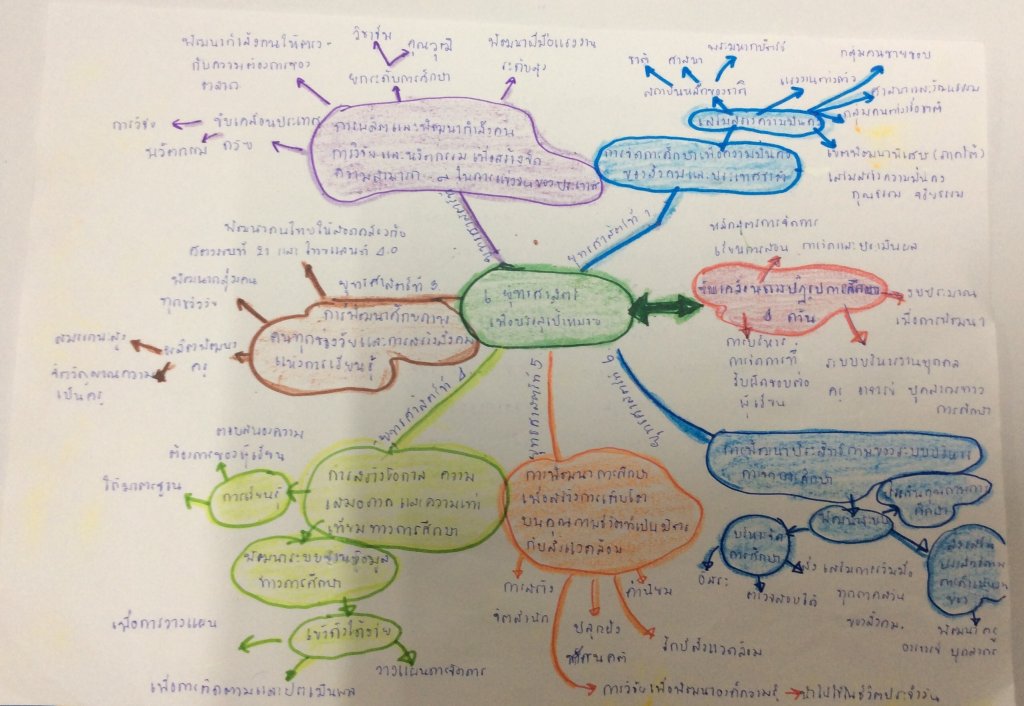 พัฒนากำลังคนให้ตรง
กับความต้องการของ
ตลาด
วิชาชีพ
คุณวุฒิ
ยกระดับการศึกษา
พัฒนาฝีมือแรงงาน
ระดับสูง
การวิจัย
ขับเคลื่อนประเทศ
นวัตกรรม
ด้วย
การผลิตและพัฒนากำลังคน
การวิจัย และนวัตกรรม เพื่อสร้างขีด
ความสามารถ ในการแข่งขันของประเทศ
ยุทธศาสตร์ที่ 2
ชาติ
ศาสนา
พระมหากษัตริย์
สถาบันหลักของชาติ
แรงงานต่างด้าว
กลุ่มคนชายขอบ
ศาสนาและวัฒนธรรม
กลุ่มคนต่างเชื้อชาติ
เสริมสร้างความมั่นคง
เขตพัฒนาพิเศษ (ภาคใต้)
เสริมสร้างความมั่นคง
คุณธรรม จริยธรรม
การจัดการศึกษาเพื่อความมั่นคง
ของสังคมและประเทศชาติ
ยุทธศาสตร์ที่ 1
6 ยุทธศาสตร์
เพื่อบรรลุเป้าหมาย
หลักสูตรการจัดการ
เรียนการสอน การวัดและประเมินผล
ขับเคลื่อนตามปฏิรูปการศึกษา
งบประมาณ
เพื่อการพัฒนา
การบริหาร
การจัดการที่
รับผิดชอบต่อ
ผู้เรียน
ระบบบริหารงานบุคคล
ครู อาจารย์ บุคลากรทาง
การศึกษา
พัฒนาคนไทยให้สอดคล้องกับ
ศตวรรษที่ 21 และ ไทยแลนด์ 4.0
พัฒนากลุ่มคน
ทุกช่วงวัย
ยุทธศาสตร์ที่ 3
การพัฒนาศักยภาพ
คนทุกช่วงวัย และการสร้างสังคม
แห่งการเรียนรู้
สมรรถนะสูง
ผลิตพัฒนา
ครู
จิตวิญญาณความ
เป็นครู
ยุทธศาสตร์ที่ 4
ตอบสนองความ
ต้องการของผู้เรียน
การเรียนรู้
ได้มาตรฐาน
การสร้างโอกาส ความ
เสมอภาค และความเท่า
เทียมทางการศึกษา
พัฒนาระบบฐานข้อมูล
ทางการศึกษา
เข้าถึงได้ง่าย
เพื่อการวางแผน
เพื่อการติดตามและประเมินผล
วางแผนการจัดการ
ยุทธศาสตร์ที่ 5
การพัฒนาการศึกษา
เพื่อสร้างการเติบโต
บนคุณภาพชีวิตที่เป็นมิตร
กับสิ่งแวดล้อม
การสร้าง
จิตสำนึก
ปลูกฝัง
ทัศนคติ
ค่านิยม
รักษ์สิ่งแวดล้อม
การวิจัยเพื่อพัฒนาองค์ความรู้
นำไปใช้ในชีวิตประจำวัน
ยุทธศาสตร์ที่ 6
การพัฒนาประสิทธิภาพของระบบบริหาร
การจัดการศึกษา
ประกันคุณภาพการ
ศึกษา
บริหารจัด
การศึกษา
อิสระ
ตรวจสอบได้
ส่งเสริมการร่วมมือ
ทุกภาคส่วน
ของสังคม
พัฒนาครู
อาจารย์ บุคลากร